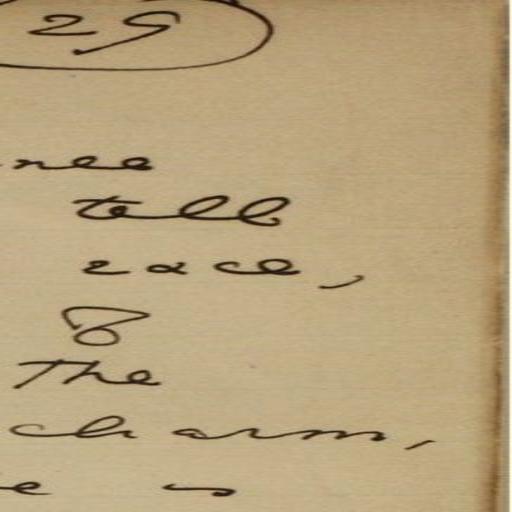 29
nee
tell
race,
&
The
charm,
e